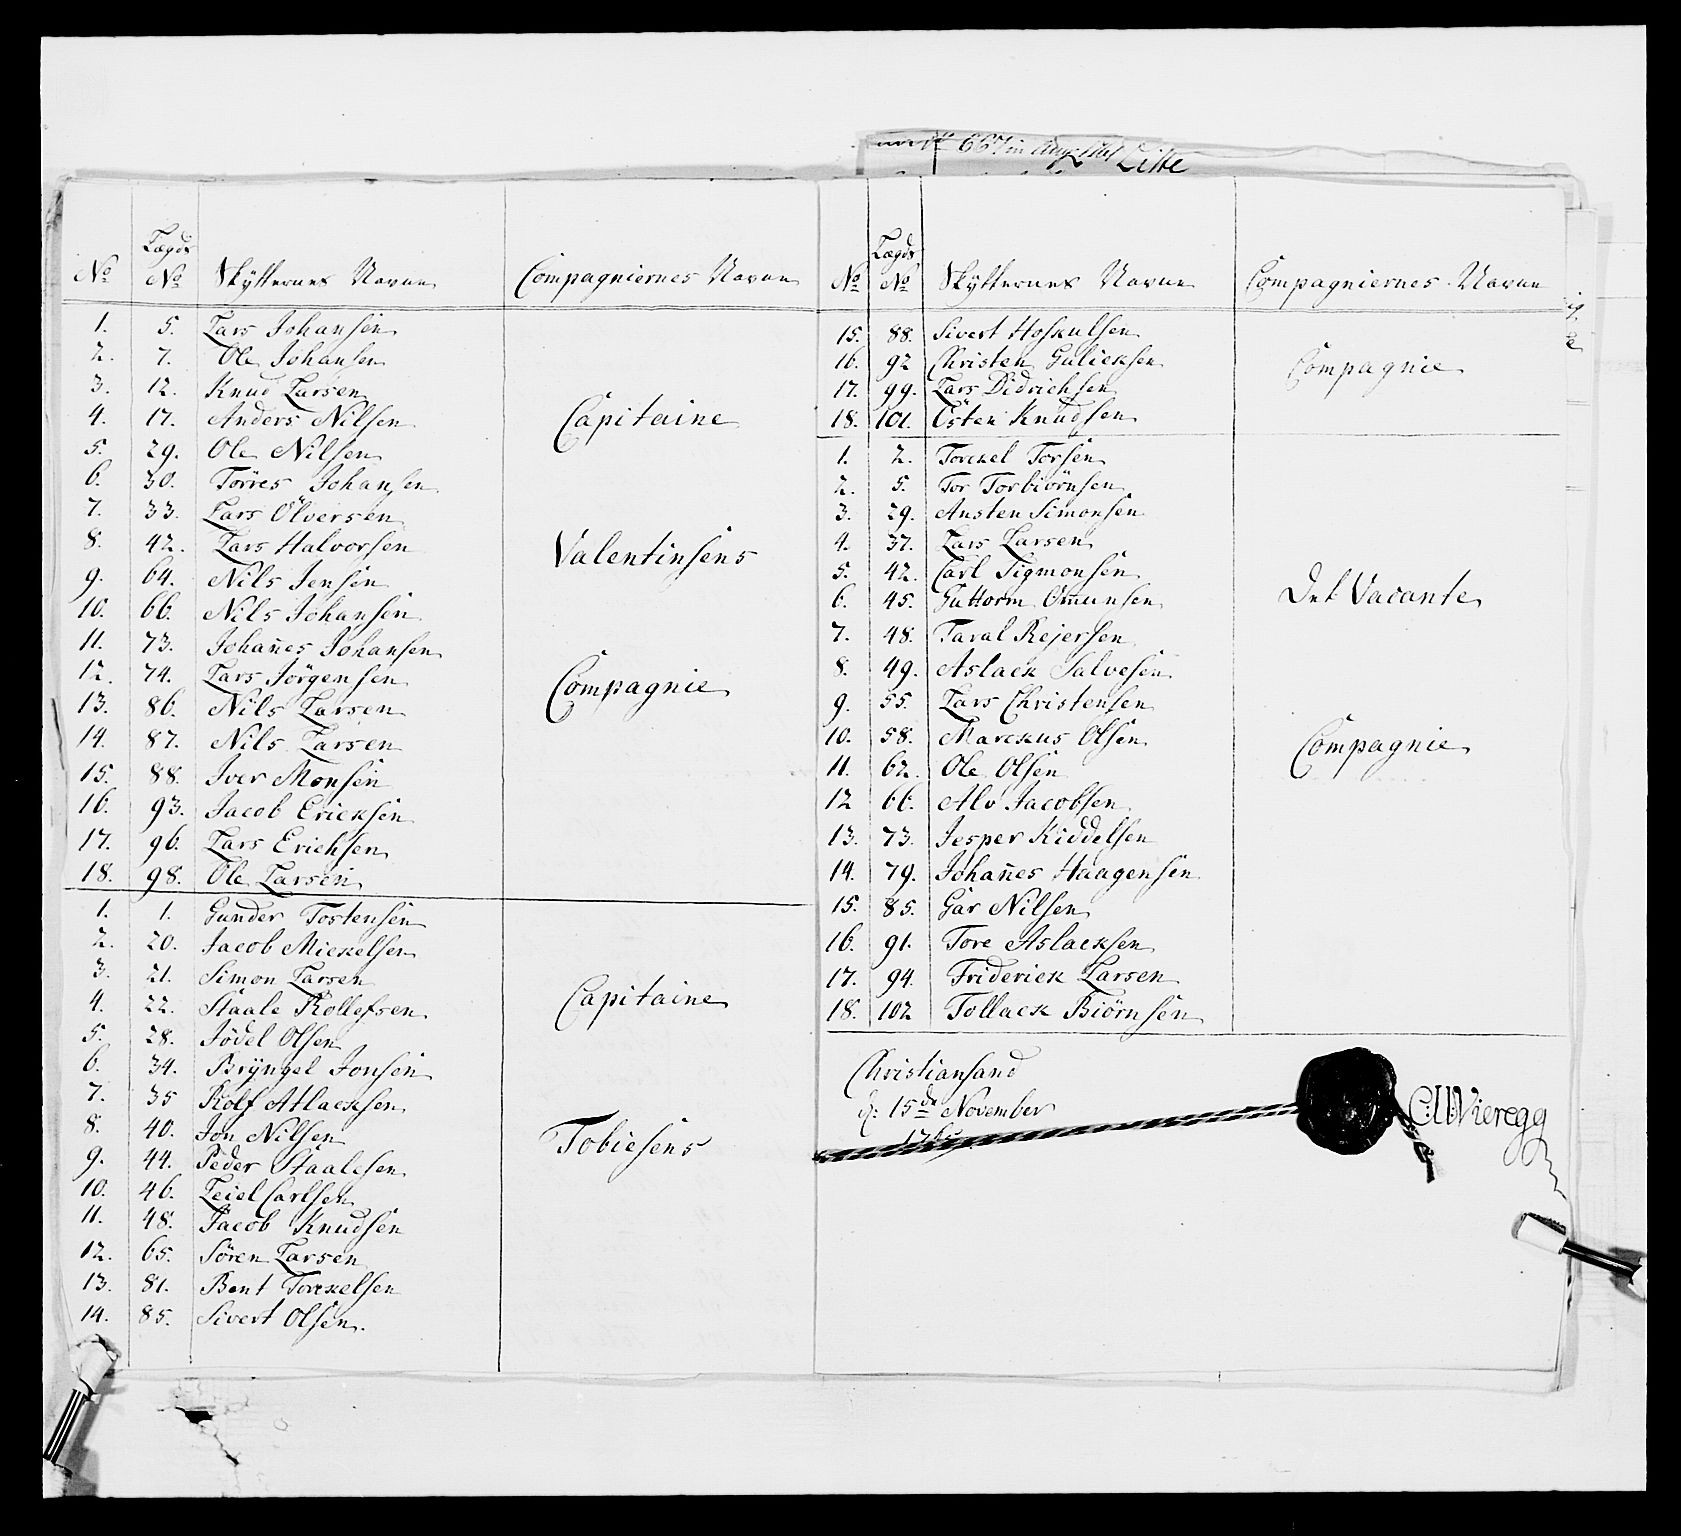 Liste
No Lægds No Skÿtternes Navne Compagniernes Navne
1. 5. Lars Johansen
2. 7. Ole Johansen
3. 12. Knud Larsen
4. 17. Anders Nilsen
Capitaine
5. 29. Ole Nilsen
6. 30. Törres Johansen
7. 33. Lars Ölversen
8. 42. Lars Halvorsen
Valentinsens
9. 64. Nils Jensen
10. 66. Nils Johansen
11. 73. Johañes Johansen
12. 74. Lars Jörgensen
Compagnie
13. 86. Nils Larsen
14. 87. Nils Larsen
15. 88. Iver Monsen
16. 93. Jacob Ericksen
17. 96. Lars Erichsen
18. 98. Ole Larsen
1. 1. Gunder Tostensen
2. 20. Jacob Mickelsen
3. 21. Simon Larsen
4. 22. Staale Rollefsen
Capitaine
5. 28. Jödel Olsen
6. 34. Brÿngel Jonsen
7. 35 Rolf Atlacksen
8. 40. Jon Nilsen
Tobiesens
9. 44. Peder Staalesen
10. 46. Leiel Carlsen
11. 48. Jacob Knudsen
12. 65. Sören Larsen
13. 81. Bent Torckelsen
14. 85. Sivert Olsen.
No Lægds No Skÿtternes Navne Compagniernes Navne
15. 88. Sivert Hoskulsen
16. 92 Christen Gulicksen
Compagnie
17. 99. Lars Didrichsen
18. 101. Östen Knudsen
1. 2. Torckel Torsen
2. 5. Tor Torbiörnsen
3. 29. Austen Simonsen
4. 37. Lars Larsen
5. 42. Carl Sigmonsen
6. 45. Guttorm Omunsen
Det Vacante
7. 48. Taral Rejersen
8. 49. Aslack Salvesen
9. 55. Lars Christensen
10. 58. Marckus Olsen
Compagnie
11. 62. Ole Olsen
12 66. Alv Jacobsen
13. 73. Jesper Kiddelsen
14. 79. Johañes Haagensen
15. 85. Gar Nilsen
16. 91. Tore Aslacksen
17. 94. Friderick Larsen
18. 102 Tollack Biörnsen
Christiansand
d: 15de November
C:U:Vieregg